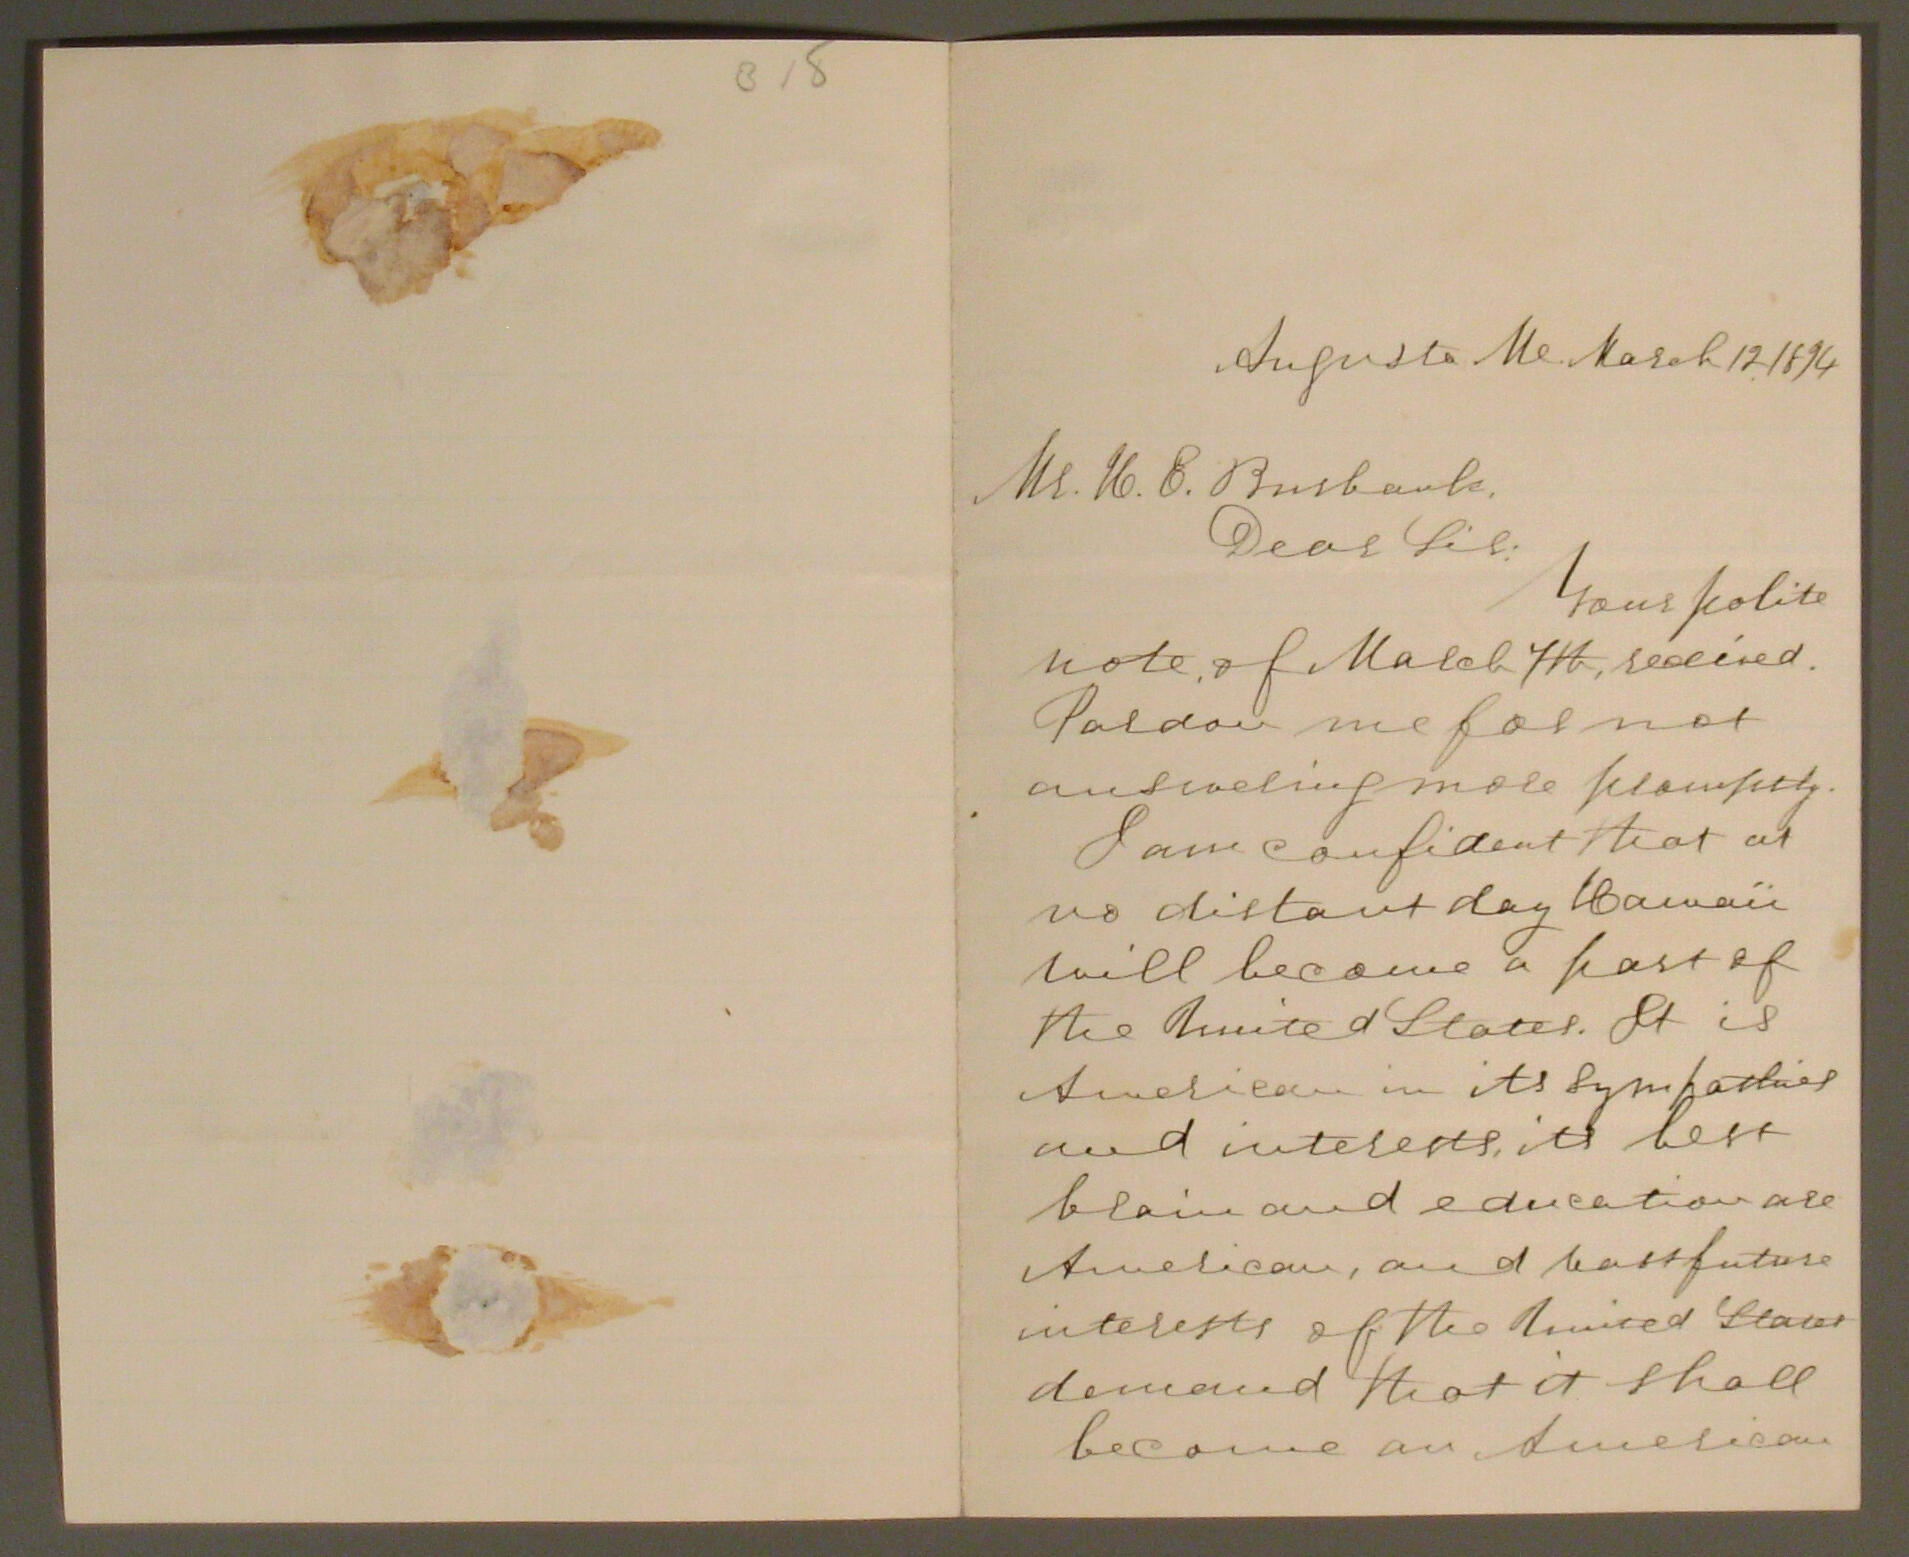 B 18
Augusta Me. March 12, 1894
Mr. H. E. Burbank.
Dear Sir:
Your polite
note, of March 7th, received.
Pardon me for not
answering more promptly.
I am confident that at
no distant day Hawaii
will become a part of
the United States. It is
American in its sympathies
and interests, its best
brain and education are
American, and vast future
interests of the United States
demand that it shall
become an American